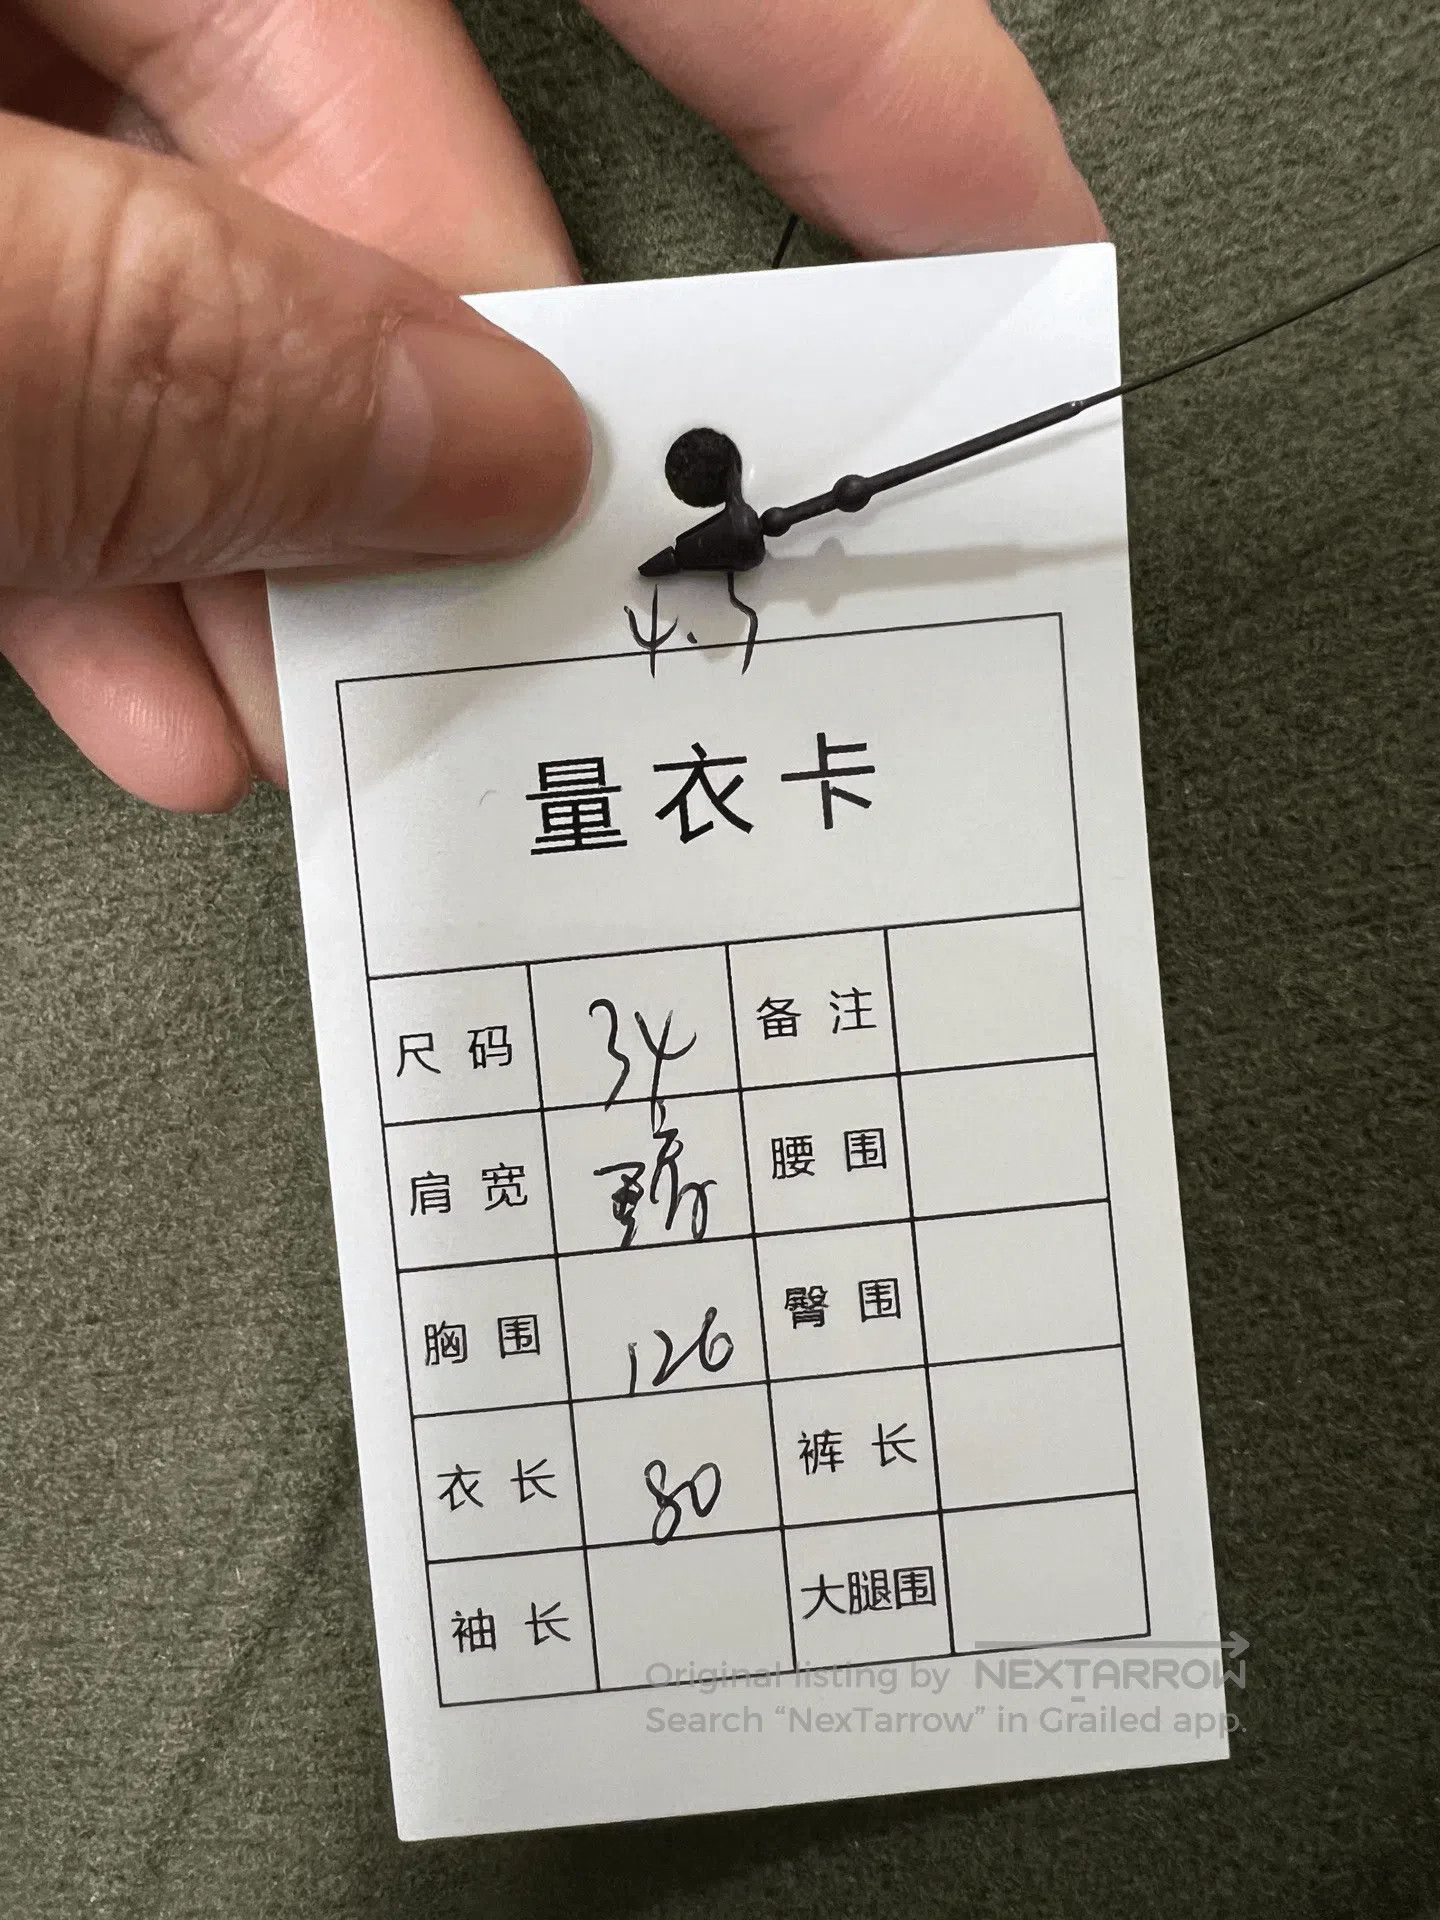 4.7
量衣卡
尺码 34 备注
肩宽 腰围
胸围 126 臀围
衣长 80 裤长
袖长 大腿围
Original listing by NEXTARROW
Search “NexTarrow” in Grailed app.